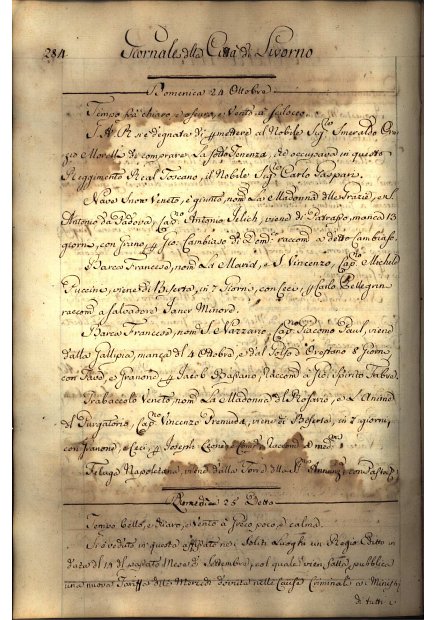 284 Giornale della Città di Livorno
Domenica 24 Ottobre
Tempo fra chiaro e oscuro, e Vento a Scilocco.
S. A. R. si è degnata di permettere al Nobile Sigre Smeraldo
Morelli di comprare La sotto Tenenza, che occupava in questo
Reggimento Real Toscano, il Nobile Sigre Carlo Gaspari.
Nave Snow Veneto, è giunto, nomto La Madonna delle Grazie, e S.
Antonio da Padova, Capno Antonio Ilich, viene di Patrasso, manca 13
giorni, con Grano, p Gio: Cambiaso di Domco raccomto a detto Cambiaso.
Barca Francese, nomta La Maria, e S. Vincenzo, Capno Michele
Puccini, viene di Biserta, in 7 giorni, con Ceci, p Carlo Pellegrin
raccomto a Salvadore Janer Minord.
Barca Francese, nomta S. Nazzario, Capno Giacomo Paul, viene
dalla Gallipia, manca dl 4 Ottobre, e dal Golfo d'Orestano 8 Giorni
con Fava, e Granone, p Jacob Bassano, raccomto a Gio: Spirito Fabre.
Trabaccolo Veneto, nomto La Madonna del Rosario, e L'Anime
del Purgatorio, Capno Vincenzo Trenuda, viene di Biserta, in 7 giorni,
con Granone, e Ceci, p Joseph Leone e Compo Raccomto a
Filuga Napoletana, viene dalla Torre della SS. Annunz: con Pasta
25 Detto
Tempo bello, e chiaro, e Vento a Greco poco, e calma.
Si è veduto in questo affissato nei Soliti Luoghi un Regio Editto in
data del 14 del passato Mese di Settembre, col quale vien fatta pubblica
una nuova Tariffa delle Mercedi dovute nelle Cause Criminali a Ministri
di tutti i